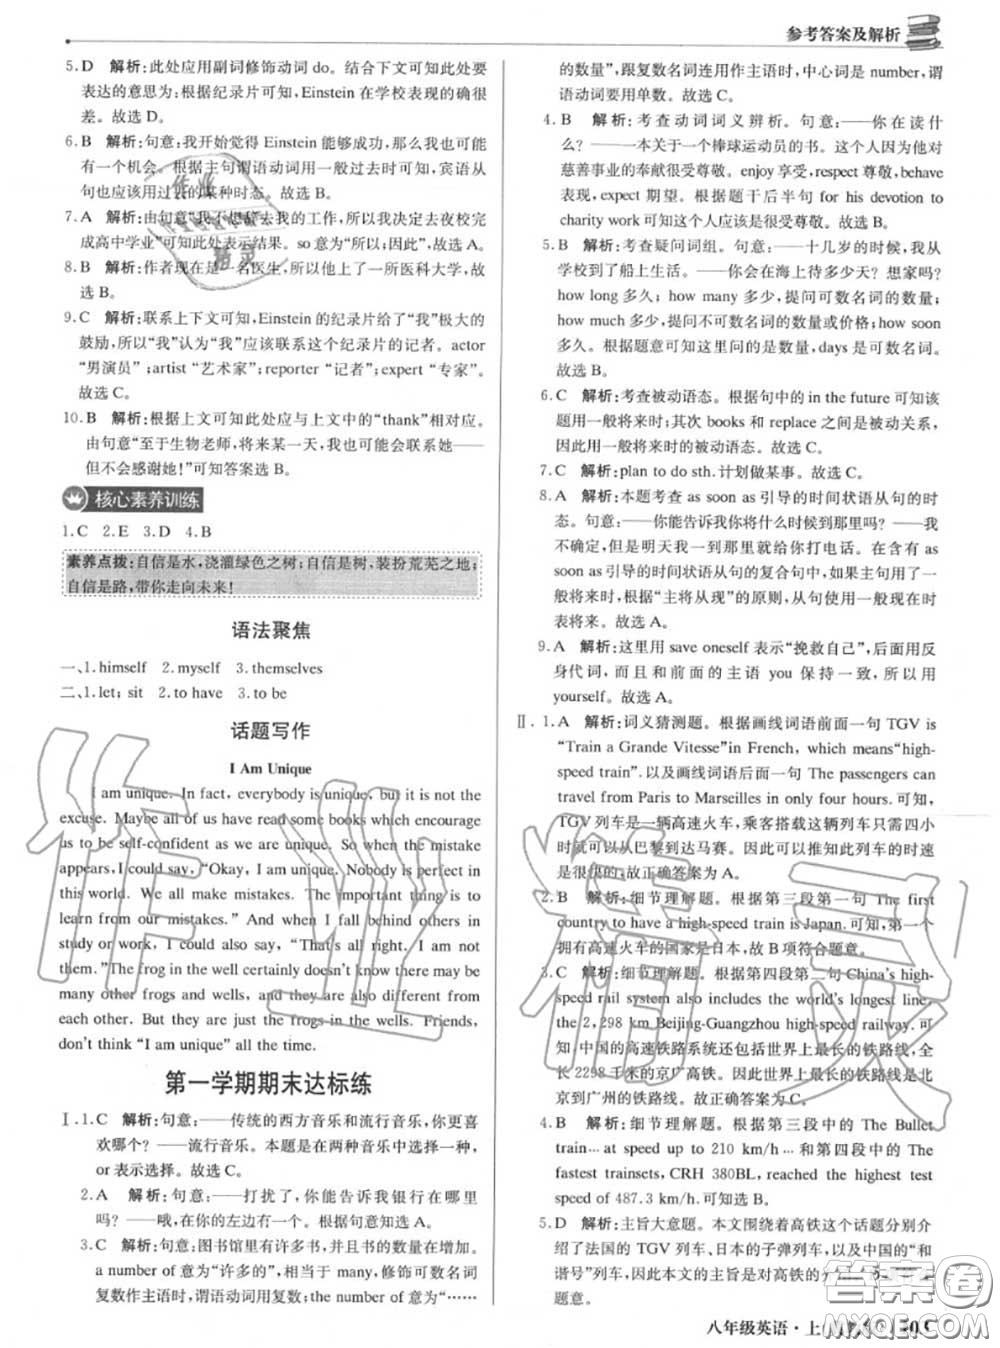 参考答案及解析
5. D 解析:此处应用副词修饰动词 do。结合下文可知此处要
表达的意思为:根据纪录片可知,Einstein 在学校表现的确很
差。故选 D。
6. B 解析:句意:我开始觉得 Einstein 能够成功,那么我也可能
有一个机会。根据主句谓语动词用一般过去时可知,宾语从
句也应该用过去的某种时态。故选 B。
7. A 解析:由句意“我不想辞去我的工作,所以我决定去夜校完
成高中学业”可知此处表示结果。so 意为“所以;因此”,故选 A。
8. B 解析:作者现在是一名医生,所以他上了一所医科大学,故
选 B。
9. C 解析:联系上下文可知,Einstein 的纪录片给了“我”极大的
鼓励,所以“我”认为“我”应该联系这个纪录片的记者。actor
“男演员”;artist “艺术家”;reporter “记者”;expert “专家”。
故选 C。
10. B 解析:根据上文可知此处应与上文中的“thank”相对应。
由句意“至于生物老师,将来某一天,我也可能会联系她——
但不会感谢她!”可知答案选 B。
核心素养训练
1. C 2. E 3. D 4. B
素养点拨:自信是水,浇灌绿色之树;自信是树,装扮荒芜之地;
自信是路,带你走向未来!
语法聚焦
一、1. himself 2. myself 3. themselves
二、1. let; sit 2. to have 3. to be
话题写作
I Am Unique
I am unique. In fact, everybody is unique, but it is not the
excuse. Maybe all of us have read some books which encourage
us to be self-confident as we are unique. So when the mistake
appears, I could say, “Okay, I am unique. Nobody is perfect in
this world. We all make mistakes. The important thing is to
learn from our mistakes.” And when I fall behind others in
study or work, I could also say, “That's all right. I am not
them.” The frog in the well certainly doesn't know there may be
many other frogs and wells, and they are also different from
each other. But they are just the frogs in the wells. Friends,
don't think “I am unique” all the time.
第一学期期末达标练
Ⅰ. 1. C 解析:句意:——传统的西方音乐和流行音乐,你更喜
欢哪个? ——流行音乐。本题是在两种音乐中选择一种,
or 表示选择。故选 C。
2. A 解析:句意:——打扰了,你能告诉我银行在哪里
吗? ——哦,在你的左边有一个。根据句意知选 A。
3. C 解析:句意:图书馆里有许多书,并且书的数量在增加。
a number of 意为“许多的”,相当于 many,修饰可数名词
复数作主语时,谓语动词用复数;the number of 意为“……
的数量”,跟复数名词连用作主语时,中心词是 number,谓
语动词要用单数。故选 C。
4. B 解析:考查动词词义辨析。句意:——你在读什
么? ——一本关于一个棒球运动员的书。这个人因为他对
慈善事业的奉献很受尊敬。enjoy 享受,respect 尊敬,behave
表现,expect 期望。根据题干后半句 for his devotion to
charity work 可知这个人应该是很受尊敬。故选 B。
5. B 解析:考查疑问词组。句意:——十几岁的时候,我从
学校到了船上生活。——你会在海上待多少天? 想家吗?
how long 多久;how many 多少,提问可数名词的数量;
how much 多少,提问不可数名词的数量或价格;how soon
多久。根据题意可知这里问的是数量,days 是可数名词。
故选 B。
6. C 解析:考查被动语态。根据句中的 in the future 可知该
题用一般将来时;其次 books 和 replace 之间是被动关系,
因此用一般将来时的被动语态。故选 C。
7. C 解析:plan to do sth. 计划做某事。故选 C。
8. A 解析:本题考查 as soon as 引导的时间状语从句的时
态。句意:——你能告诉我你将什么时候到那里吗? ——我不
确定,但是明天我一到那里就会给你打电话。在含有 as
soon as 引导的时间状语从句的复合句中,如果主句用了一
般将来时,根据“主将从现”的原则,从句要使用一般现在
时来表示将来。故选 A。
9. A 解析:这里用 save oneself 表示“挽救自己”,后面用反
身代词,而且和前面的主语 you 保持一致,所以用
yourself。故选 A。
Ⅱ. 1. A 解析:词义猜测题。根据画线词语前面一句 TGV is
“Train a Grande Vitesse”in French, which means“high-
speed train”. 以及画线词语后面一句 The passengers can
travel from Paris to Marseilles in only four hours. 可知,
TGV 列车是一辆高速火车,乘客搭载这辆列车只需四小
时就可以从巴黎到达马赛。因此可以推知此列车的时速
是很快的,故正确答案为 A。
2. B 解析:细节理解题。根据第三段第一句 The first
country to have a high-speed train is Japan. 可知,第一个
拥有高速火车的国家是日本,故 B 项符合题意。
3. C 解析:细节理解题。根据第四段第二句 China's high-
speed rail system also includes the world's longest line,
the 2,298 km Beijing-Guangzhou high-speed railway. 可
知,中国的高速铁路系统还包括世界上最长的铁路线,
全长 2298 千米的京广高铁。因此世界上最长的铁路是北
京到广州的铁路线。故正确答案为 C。
4. B 解析:细节理解题。根据第三段中的 The Bullet
train... at speed up to 210 km/h... 和第四段中的 The
fastest trainsets, CRH 380BL, reached the highest test
speed of 487.3 km/h. 可知选 B。
5. D 解析:主旨大意题。本文围绕着高铁这个话题分别介
绍了法国的 TGV 列车、日本的子弹列车,以及中国的“和
谐号”列车,因此本文的主旨是对高铁的介绍。故 D 项符合
题意。
八年级英语·上
作业精灵
答案圈